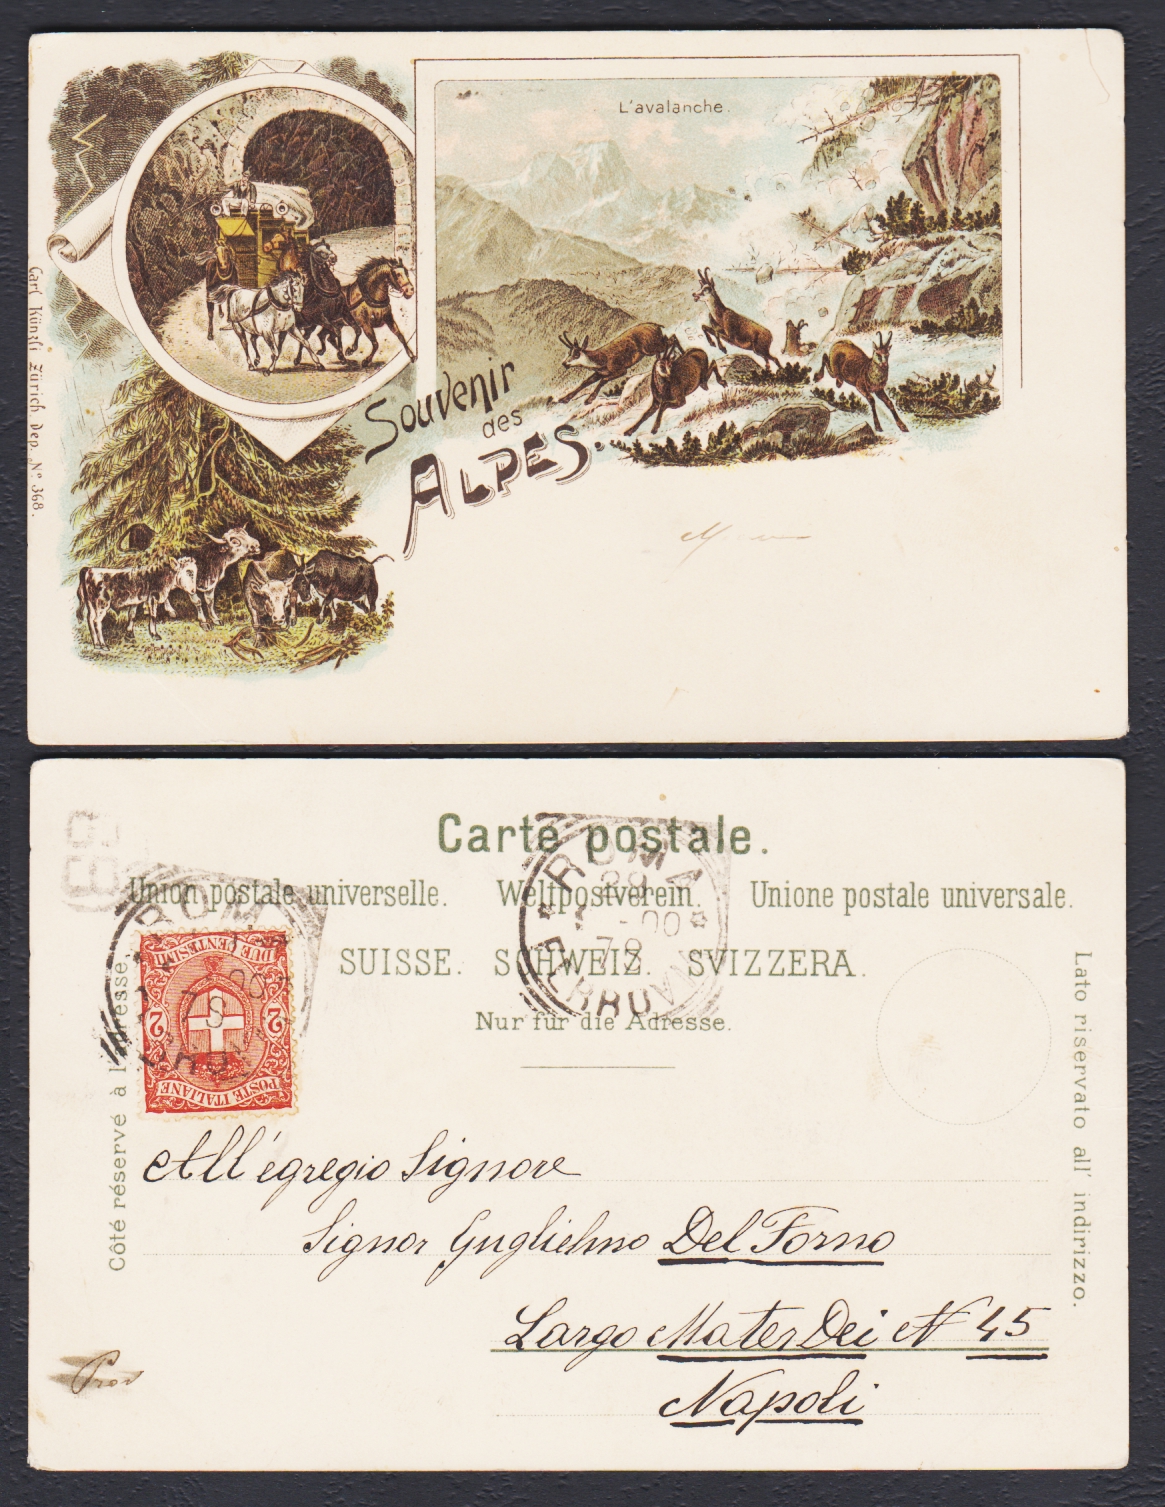 L'avalanche.
Souvenir
des
ALPES.
Carl Künzli Zürich dep. Nº 368.
Carte postale.
Union postale universelle. Weltpostverein. Unione postale universale.
SUISSE. SCHWEIZ. SVIZZERA.
Nur für die Adresse.
Côté réservé à l'adresse.
Lato riservato all' indirizzo.
ROMA
FERROVIA
ROMA
POSTE ITALIANE
2 2
DUE CENTESIMI
All'egregio Signore
Signor Guglielmo Del Forno
Largo Mater Dei Nº 45
Napoli